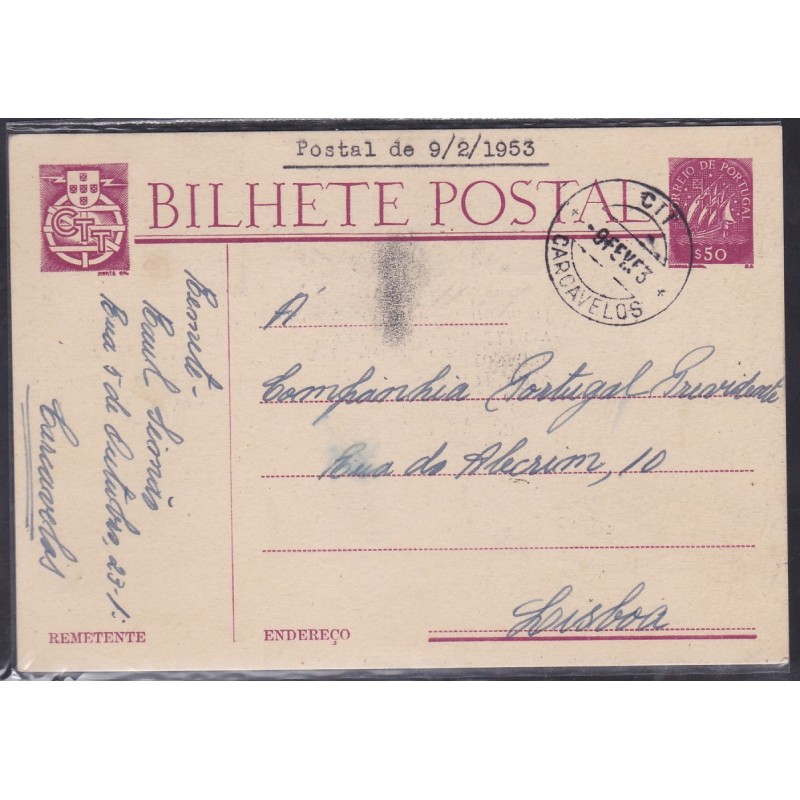 Postal de 9/2/1953
CTT
BILHETE POSTAL
CORREIO DE PORTUGAL
$50
CTT
-9FEV53
CARCAVELOS
À
Companhia Portugal Previdente
Rua do Alecrim, 10
Lisboa
Remete-
Raul Simão
Rua 5 de Outubro, 23-1º
Carcavelos
REMETENTE
ENDEREÇO